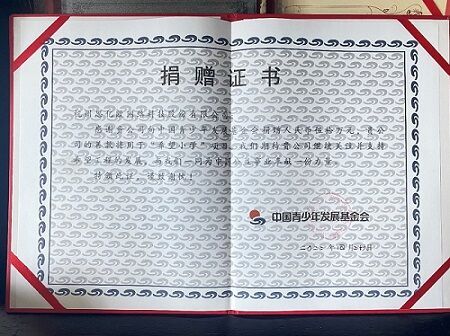 捐赠证书
杭州亿网络科技股份有限公司
感谢贵公司向中国青少年发展基金会捐赠人民币伍拾万元，贵公
司的善款将用于“希望小学”项目。我们期待贵公司继续关注并支持
希望工程的发展，与我们一同为中国公益事业奉献一份力量。
特颁此证，谨致谢忱！
中国青少年发展基金会